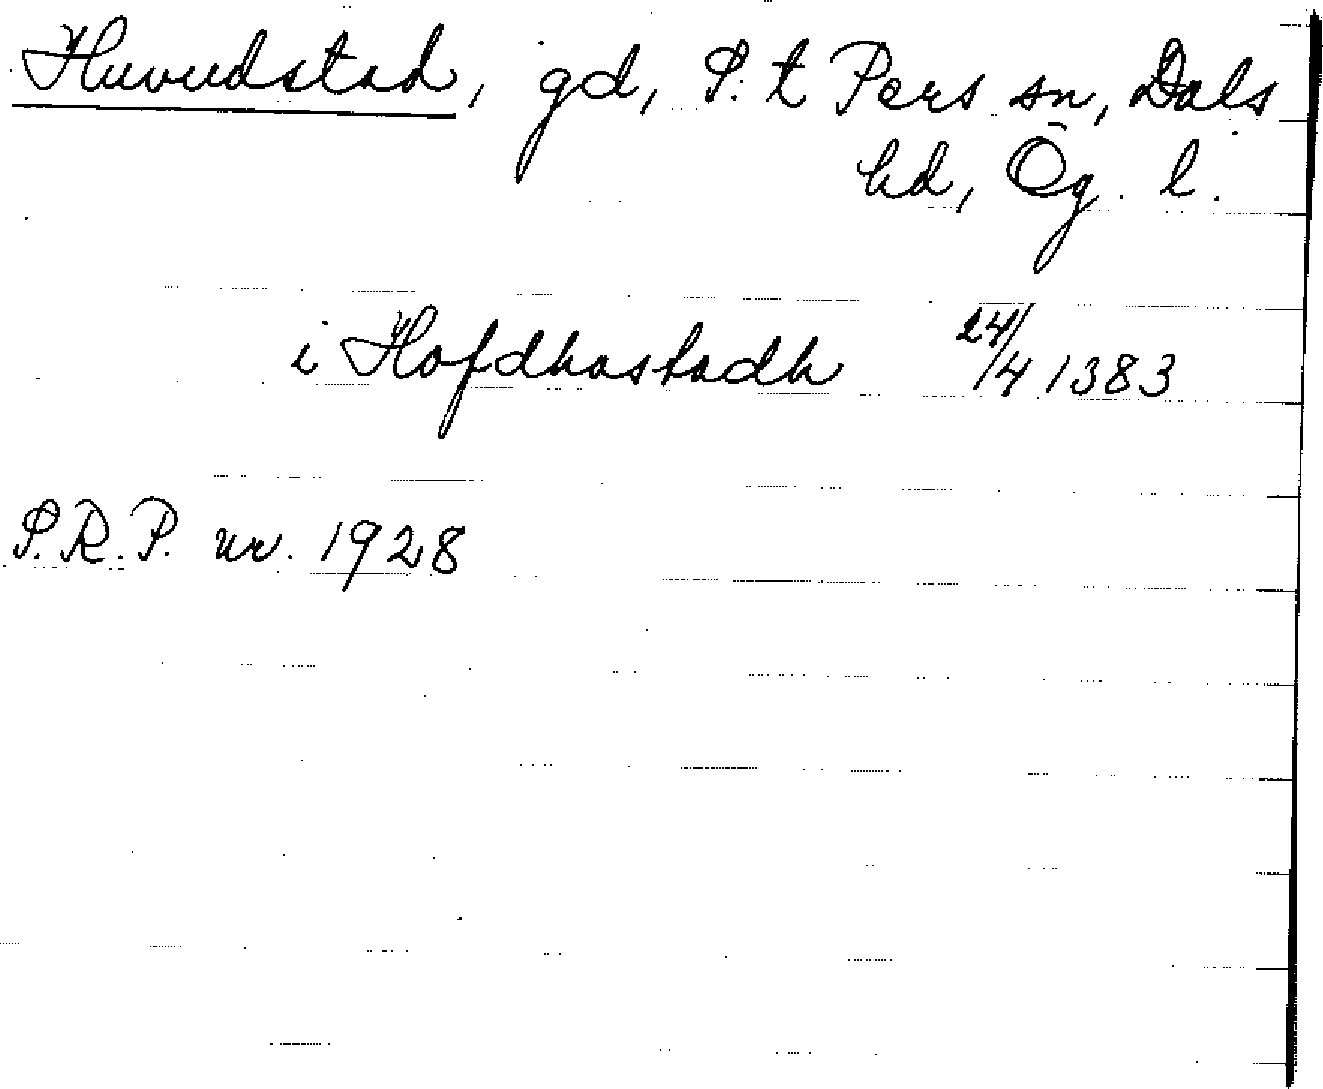 Huvudstad, gd, S:t Pers sn, Dals
hd, Ög. l.
i Hofdhastadh 24/4 1383
S.R.P. nr. 1928